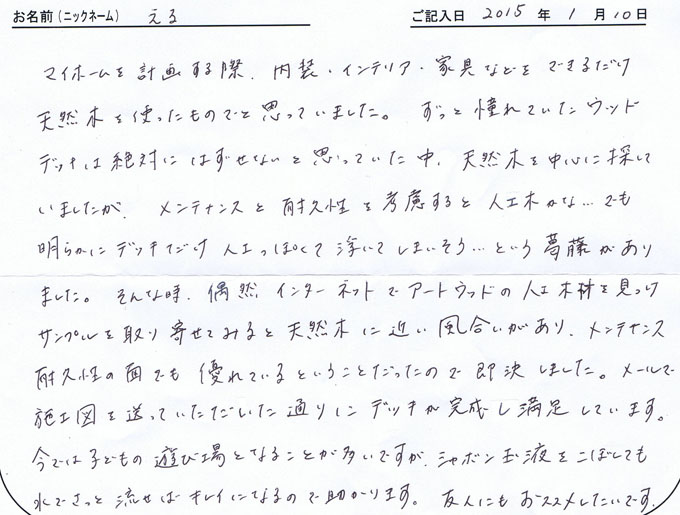 お名前（ニックネーム） える ご記入日 2015 年 1 月 10 日
マイホームを計画する際、内装・インテリア・家具などをできるだけ
天然木を使ったものでと思っていました。ずっと憧れていたウッド
デッキは絶対にはずせないと思っていた中、天然木を中心に探して
いましたが、メンテナンスと耐久性を考慮すると人工木かな…でも
明らかにデッキだけ人工っぽくて浮いてしまいそう…という葛藤があり
ました。そんな時、偶然インターネットでアートウッドの人工木材を見つけ
サンプルを取り寄せてみると天然木に近い風合いがあり、メンテナンス
耐久性の面でも優れているということだったので即決しました。メールで
施工図を送っていただいた通りにデッキが完成し満足しています。
今では子どもの遊び場となることが多いですが、シャボン玉液をこぼしても
水でさっと流せばキレイになるので助かります。友人にもおススメしたいです。